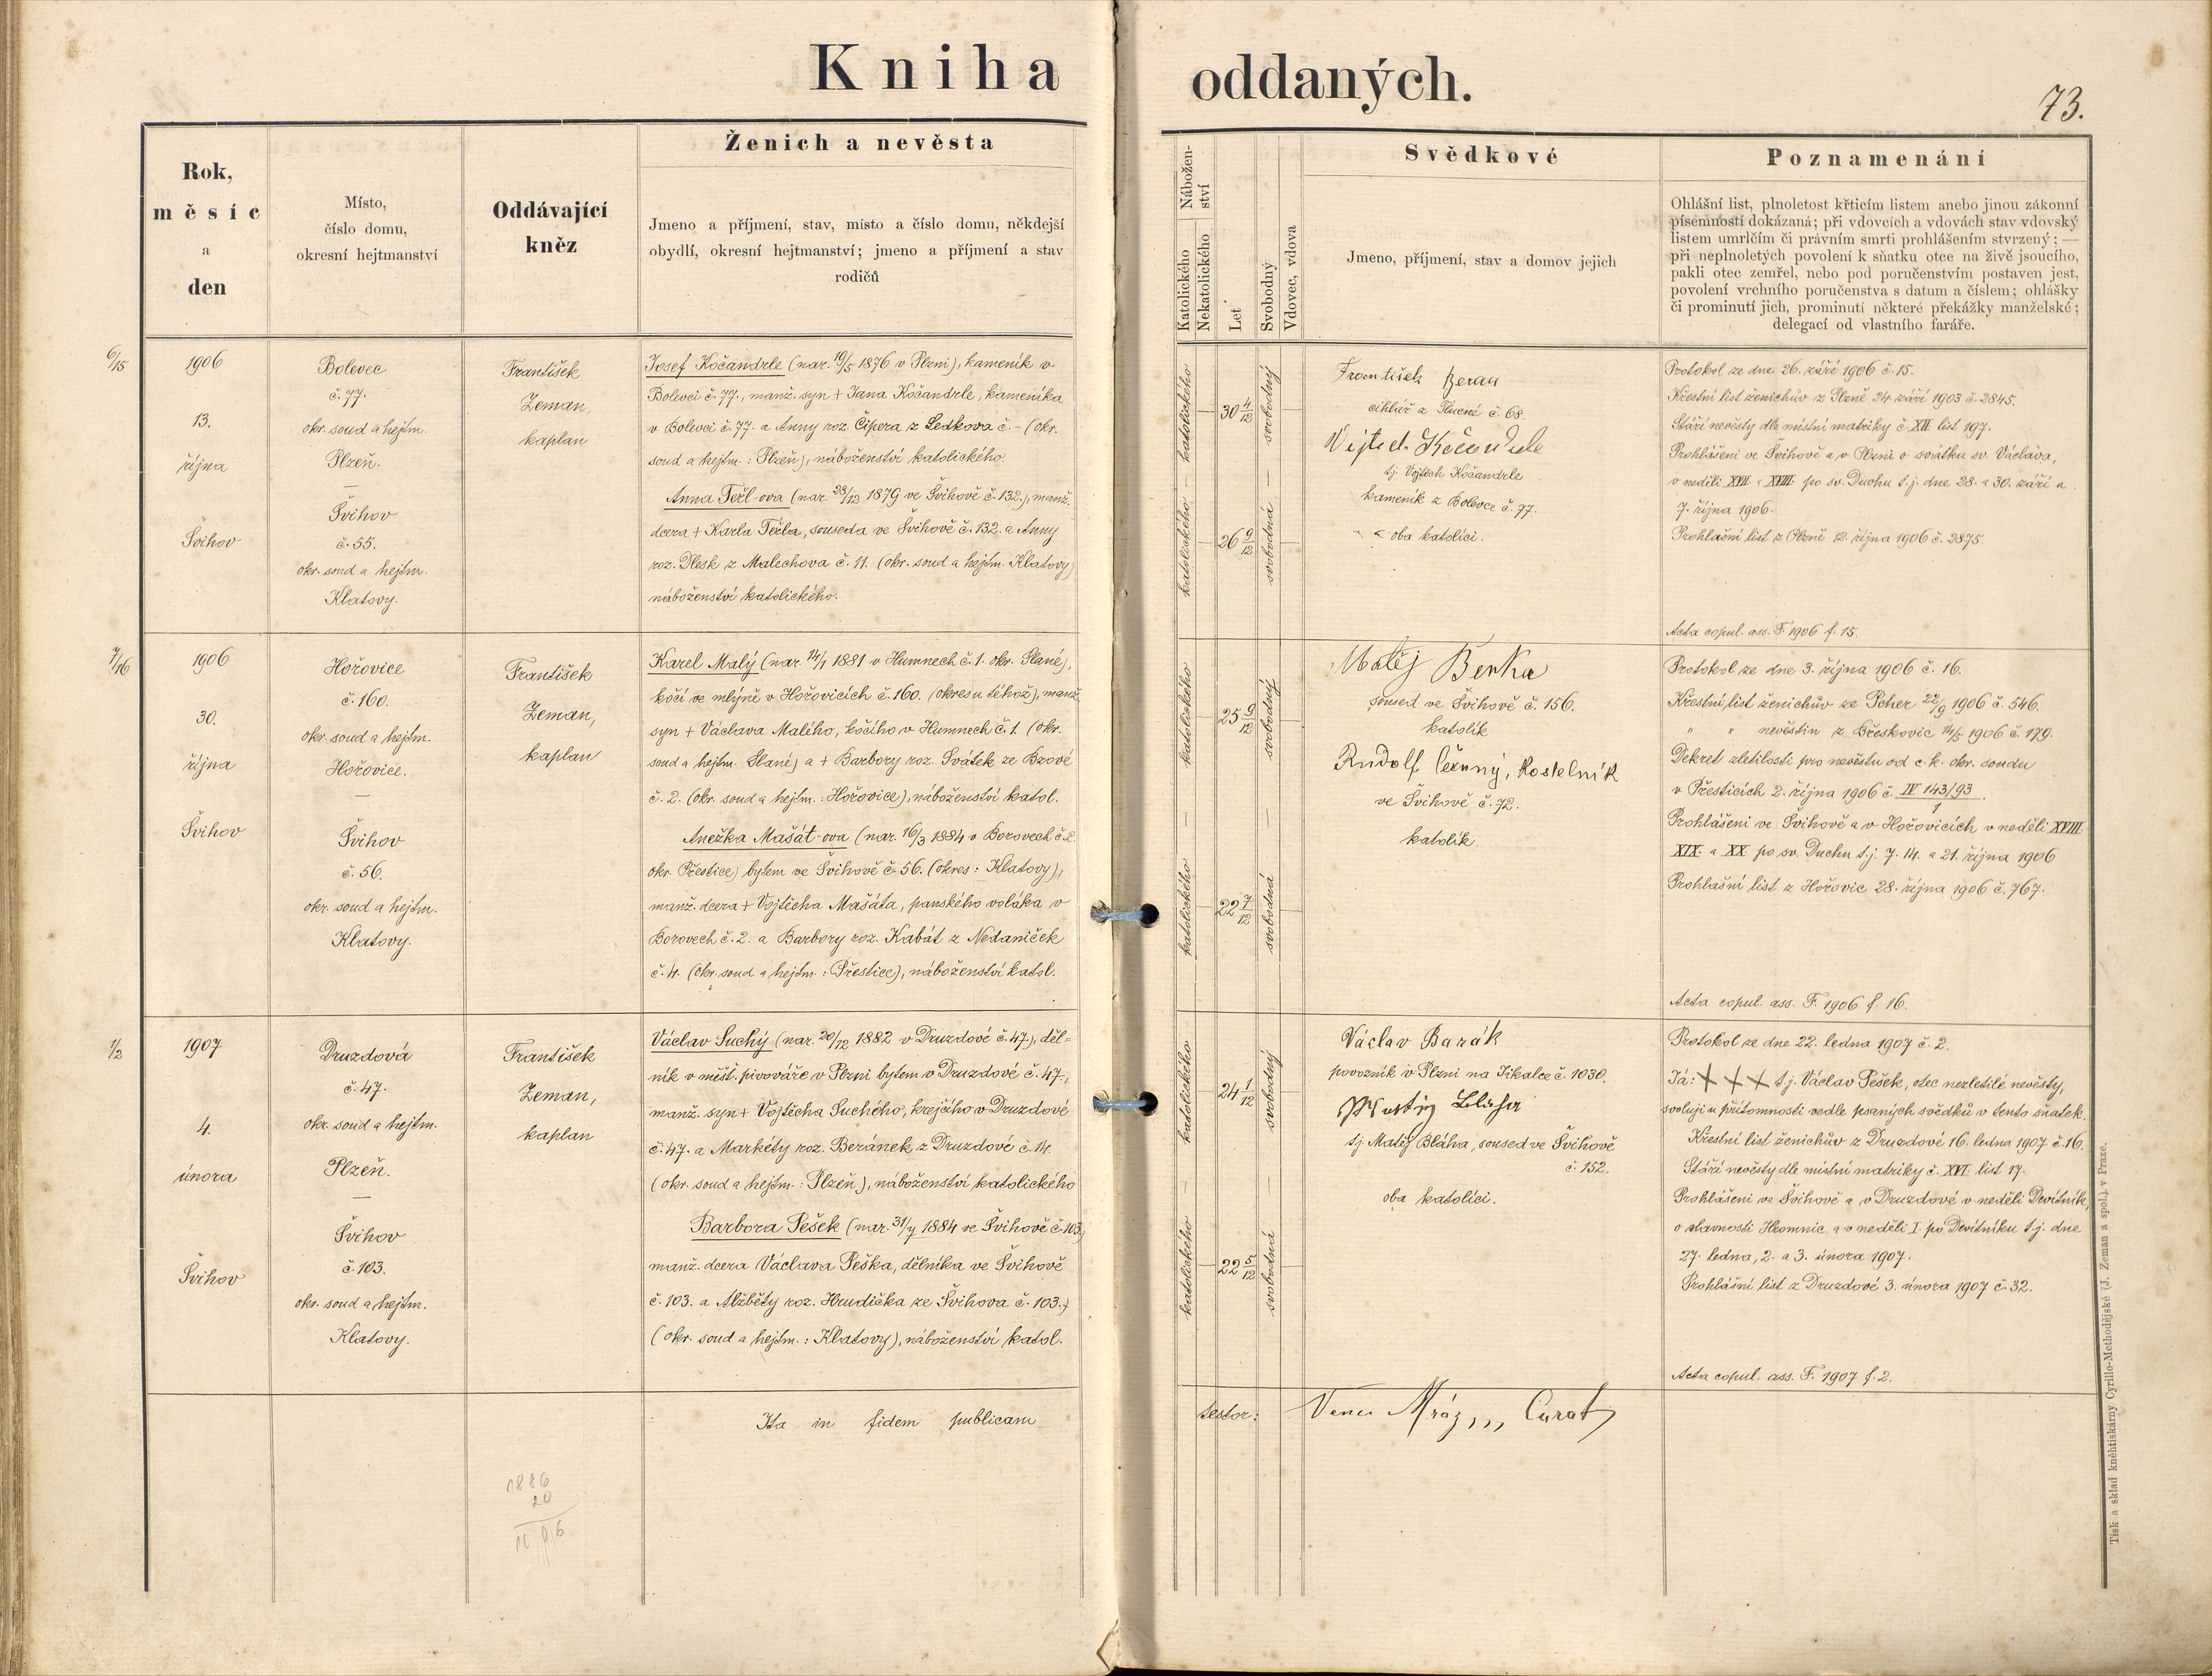 Kniha oddaných.
73.
Rok,
měsíc
a
den
Místo,
číslo domu,
okresní hejtmanství
Oddávající
kněz
Ženich a nevěsta
Jmeno a příjmení, stav, místo a číslo domu, někdejší
obydlí, okresní hejtmanství; jmeno a příjmení a stav
rodičů
Nábožen-
ství
Katolického
Nekatolického
Let
Svobodný
Vdovec, vdova
Svědkové
Jmeno, příjmení, stav a domov jejich
Poznamenání
Ohlášní list, plnoletost křticím listem anebo jinou zákonní
písemností dokázaná; při vdovcích a vdovách stav vdovský
listem umrlčím či právním smrti prohlášením stvrzený; —
při neplnoletých povolení k sňatku otce na živě jsoucího,
pakli otec zemřel, nebo pod poručenstvím postaven jest,
povolení vrchního poručenstva s datum a číslem; ohlášky
či prominutí jich, prominutí některé překážky manželské;
delegací od vlastního faráře.
6/15
1906
13.
října
Švihov
Bolevec
č. 77.
okr. soud a hejtm.
Plzeň.
—
Švihov
č. 55.
okr. soud a hejtm.
Klatovy.
František
Zeman,
kaplan
Josef Kočandrle (nar. 19/5 1876 v Plzni), kameník v
Bolevci č. 77., manž. syn + Jana Kočandrle, kameníka
v Bolevci č. 77. a Anny roz. Čipera z Ledkova č. – (okr.
soud a hejtm.: Plzeň), náboženství katolického.
Anna Teřl-ova (nar. 28/12 1879 ve Švihově č. 132.), manž.
dcera + Karla Teřla, souseda ve Švihově č. 132. a Anny
roz. Dlesk z Malechova č. 11. (okr. soud a hejtm. Klatovy)
náboženství katolického.
katolického — katolického
30 4/12
26 9/12
svobodný — svobodná
František Beran
cihlář z č. 68.
Vojtěch Kočandrle
tj. Vojtěch Kočandrle
kameník z Bolevce č. 77.
oba katolíci.
Protokol ze dne 26. září 1906 č. 15.
Křestní list ženichův z Plzně 24. září 1903 č. 2845.
Stáří nevěsty dle místní matriky č. XII list 197.
Prohlášeni ve Švihově a v Plzni o svátku sv. Václava,
v neděli XVII. a XVIII. po sv. Duchu t. j. dne 28. a 30. září a
7. října 1906.
Prohlašní list z Plzně 12. října 1906 č. 2875.
Acta copul. ass. F. 1906 f. 15.
7/16
1906
30.
října
Švihov
Hořovice
č. 160.
okr. soud a hejtm.
Hořovice.
—
Švihov
č. 56.
okr. soud a hejtm.
Klatovy.
František
Zeman,
kaplan
Karel Malý (nar. 14/1 1881 v Humnech č. 1. okr. Slané),
kočí ve mlýně v Hořovicích č. 160. (okresu téhož), manž.
syn + Václava Malého, kočího v Humnech č. 1. (okr.
soud a hejtm. Slané) a + Barbory roz. Svátek ze Bzové
č. 2. (okr. soud a hejtm.: Hořovice), náboženství katol.
Anežka Mašát-ova (nar. 16/3 1884 v Borovech č. 2.
okr. Přestice) bytem ve Švihově č. 56. (okres: Klatovy),
manž. dcera + Vojtěcha Mašáta, panského voláka v
Borovech č. 2. a Barbory roz. Kabát z Nedaniček
č. 4. (okr. soud a hejtm.: Přestice), náboženství katol.
katolického — katolického
25 9/12
22 7/12
svobodný — svobodná
Matěj Berka
soused ve Švihově č. 156.
katolík
Rudolf Černný, kostelník
ve Švihově č. 72.
katolík.
Protokol ze dne 3. října 1906 č. 16.
Křestní list ženichův ze Peher 22/9 1906 č. 546.
" " nevěstin z Břeskovic 14/5 1906 č. 179.
Dekret zletilosti pro nevěstu od c. k. okr. soudu
v Přesticích 2. října 1906 č. IV 143/93/1.
Prohlášeni ve Švihově a v Hořovicích v neděli XVIII.
XIX. a XX. po sv. Duchu t. j. 7. 14. a 21. října 1906
Prohlašní list z Hořovic 28. října 1906 č. 767.
Acta copul. ass. F. 1906 f. 16.
1/2
1907
4.
února
Švihov
Druzdová
č. 47.
okr. soud a hejtm.
Plzeň.
—
Švihov
č. 103.
okr. soud a hejtm.
Klatovy.
František
Zeman,
kaplan
Václav Suchý (nar. 20/12 1882 v Druzdové č. 47.), děl=
ník v měšť. pivováře v Plzni bytem v Druzdové č. 47.,
manž. syn + Vojtěcha Suchého, krejčího v Druzdové
č. 47. a Markéty roz. Beránek z Druzdové č. 14.
(okr. soud a hejtm.: Plzeň), náboženství katolického
Barbora Pešek (nar. 31/7 1884 ve Švihově č. 103.)
manž. dcera Václava Peška, dělníka ve Švihově
č. 103. a Alžběty roz. Hrudička ze Švihova č. 103.)
(okr. soud a hejtm.: Klatovy), náboženství katol.
katolického — katolického
24 1/12
22 5/12
svobodný — svobodná
Václav Barák
povozník v Plzni na Jikalce č. 1030.
Matěj Bláha
tj. Matěj Bláha, soused ve Švihově
č. 152.
oba katolíci.
Protokol ze dne 22. ledna 1907 č. 2.
Já: + + + t. j. Václav Pešek, otec nezletilé nevěsty,
svoluji u přítomnosti vedle psaných svědků v tento sňatek.
Křestní list ženichův z Druzdové 16. ledna 1907 č. 16.
Stáří nevěsty dle místní matriky č. XVI. list 17.
Prohlášeni ve Švihově a v Druzdové v neděli Devítník,
o slavnosti Hromnic a v neděli I. po Devítníku t. j. dne
27. ledna, 2. a 3. února 1907.
Prohlášní list z Druzdové 3. února 1907 č. 32.
Acta copul. ass. F. 1907 f. 2.
Ita in fidem publicam testor: Mráz Curat
1886
20
Tisk a sklad kněhtiskárny Cyrillo-Methodějské (J. Zeman a spol.) v Praze.